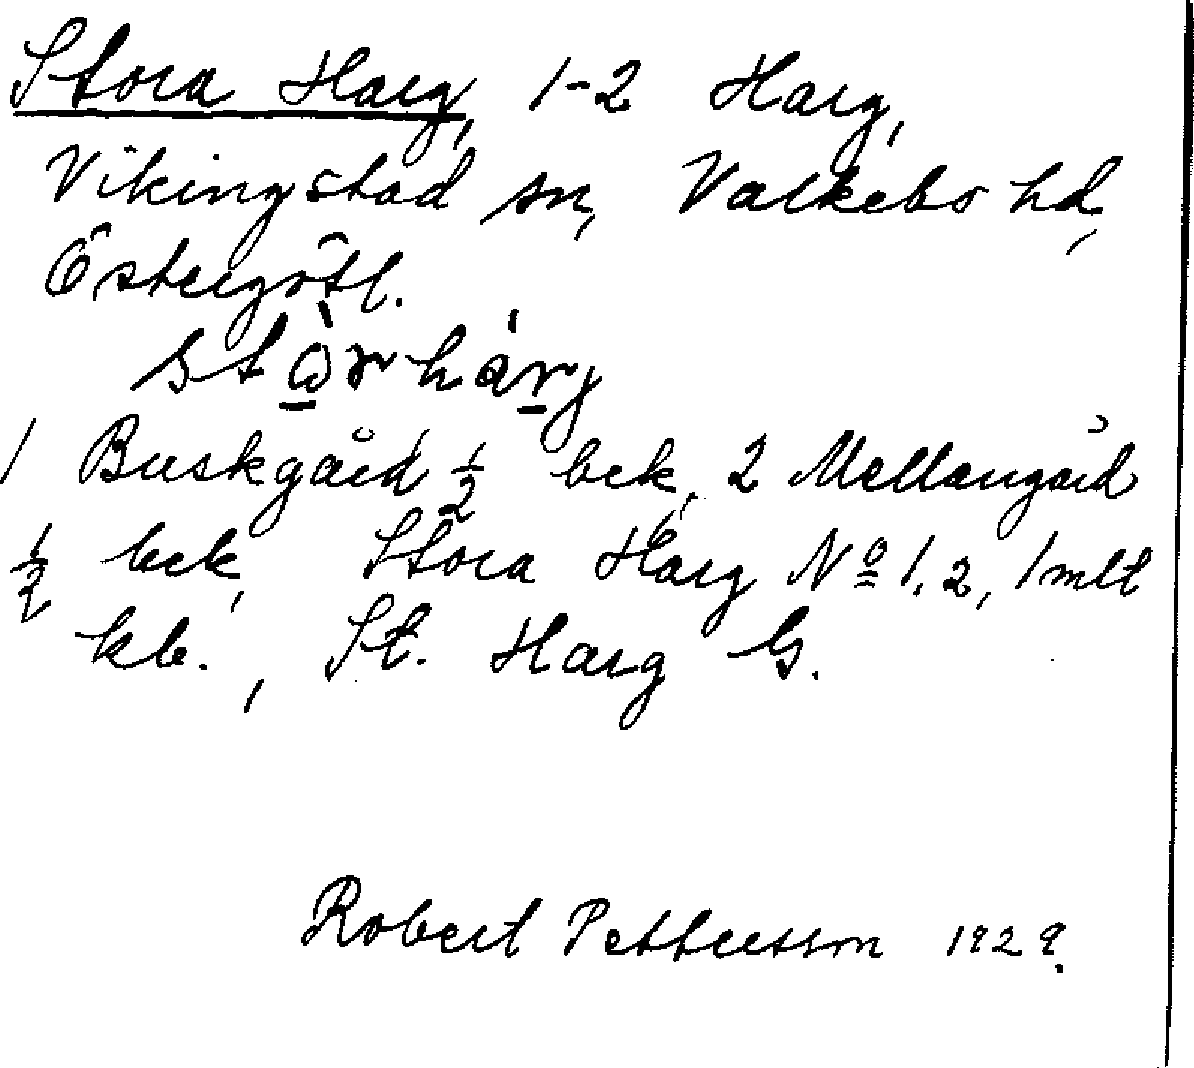 Stora Harg, 1-2 Harg,
Vikingstad sn, Valkebo hd,
Östergötl.
stὼ̲rhárj
1 Buskgård 1/2 bek, 2 Mellangård
1/2 bek, Stora Harg No 1, 2, 1 mlt
kb., St. Harg G.
Robert Pettersson 1929.